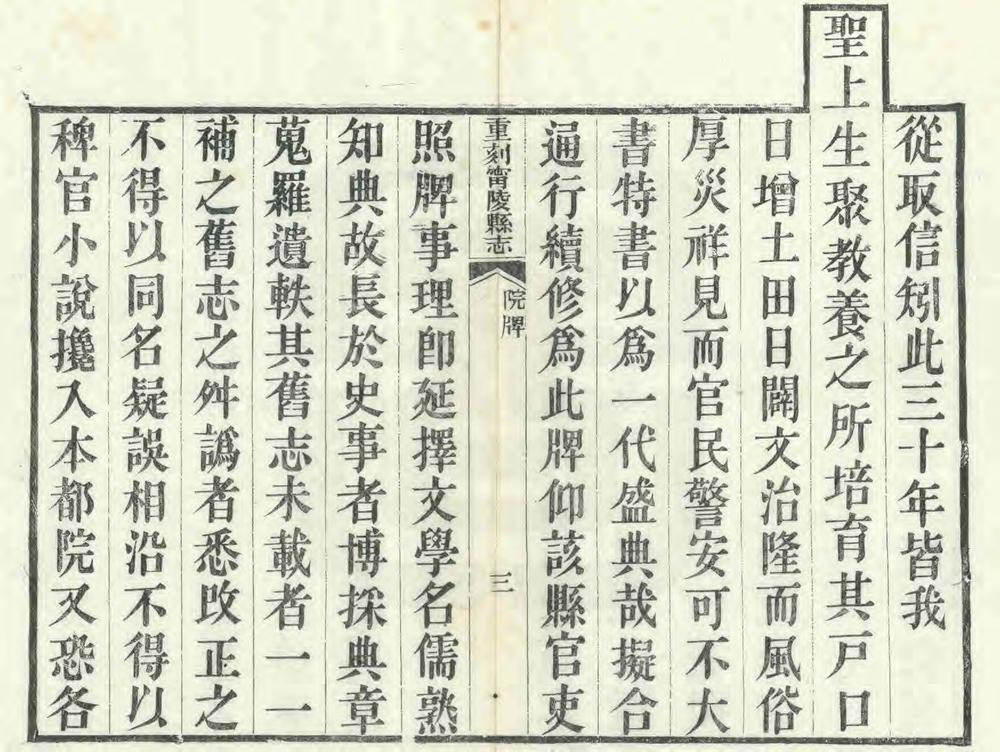 從取信矧此三十年皆我
聖上生聚教養之所培育其戸口
日增土田日闢文治隆而風俗
厚災祥見而官民警安可不大
書特書以爲一代盛典哉擬合
通行續修爲此牌仰該縣官吏
重刻甯陵縣志
院牌
三
照牌事理卽延擇文學名儒熟
知典故長於史事者博採典章
蒐羅遺軼其舊志未載者一一
補之舊志之舛譌者悉改正之
不得以同名疑誤相沿不得以
稗官小說攙入本都院又恐各